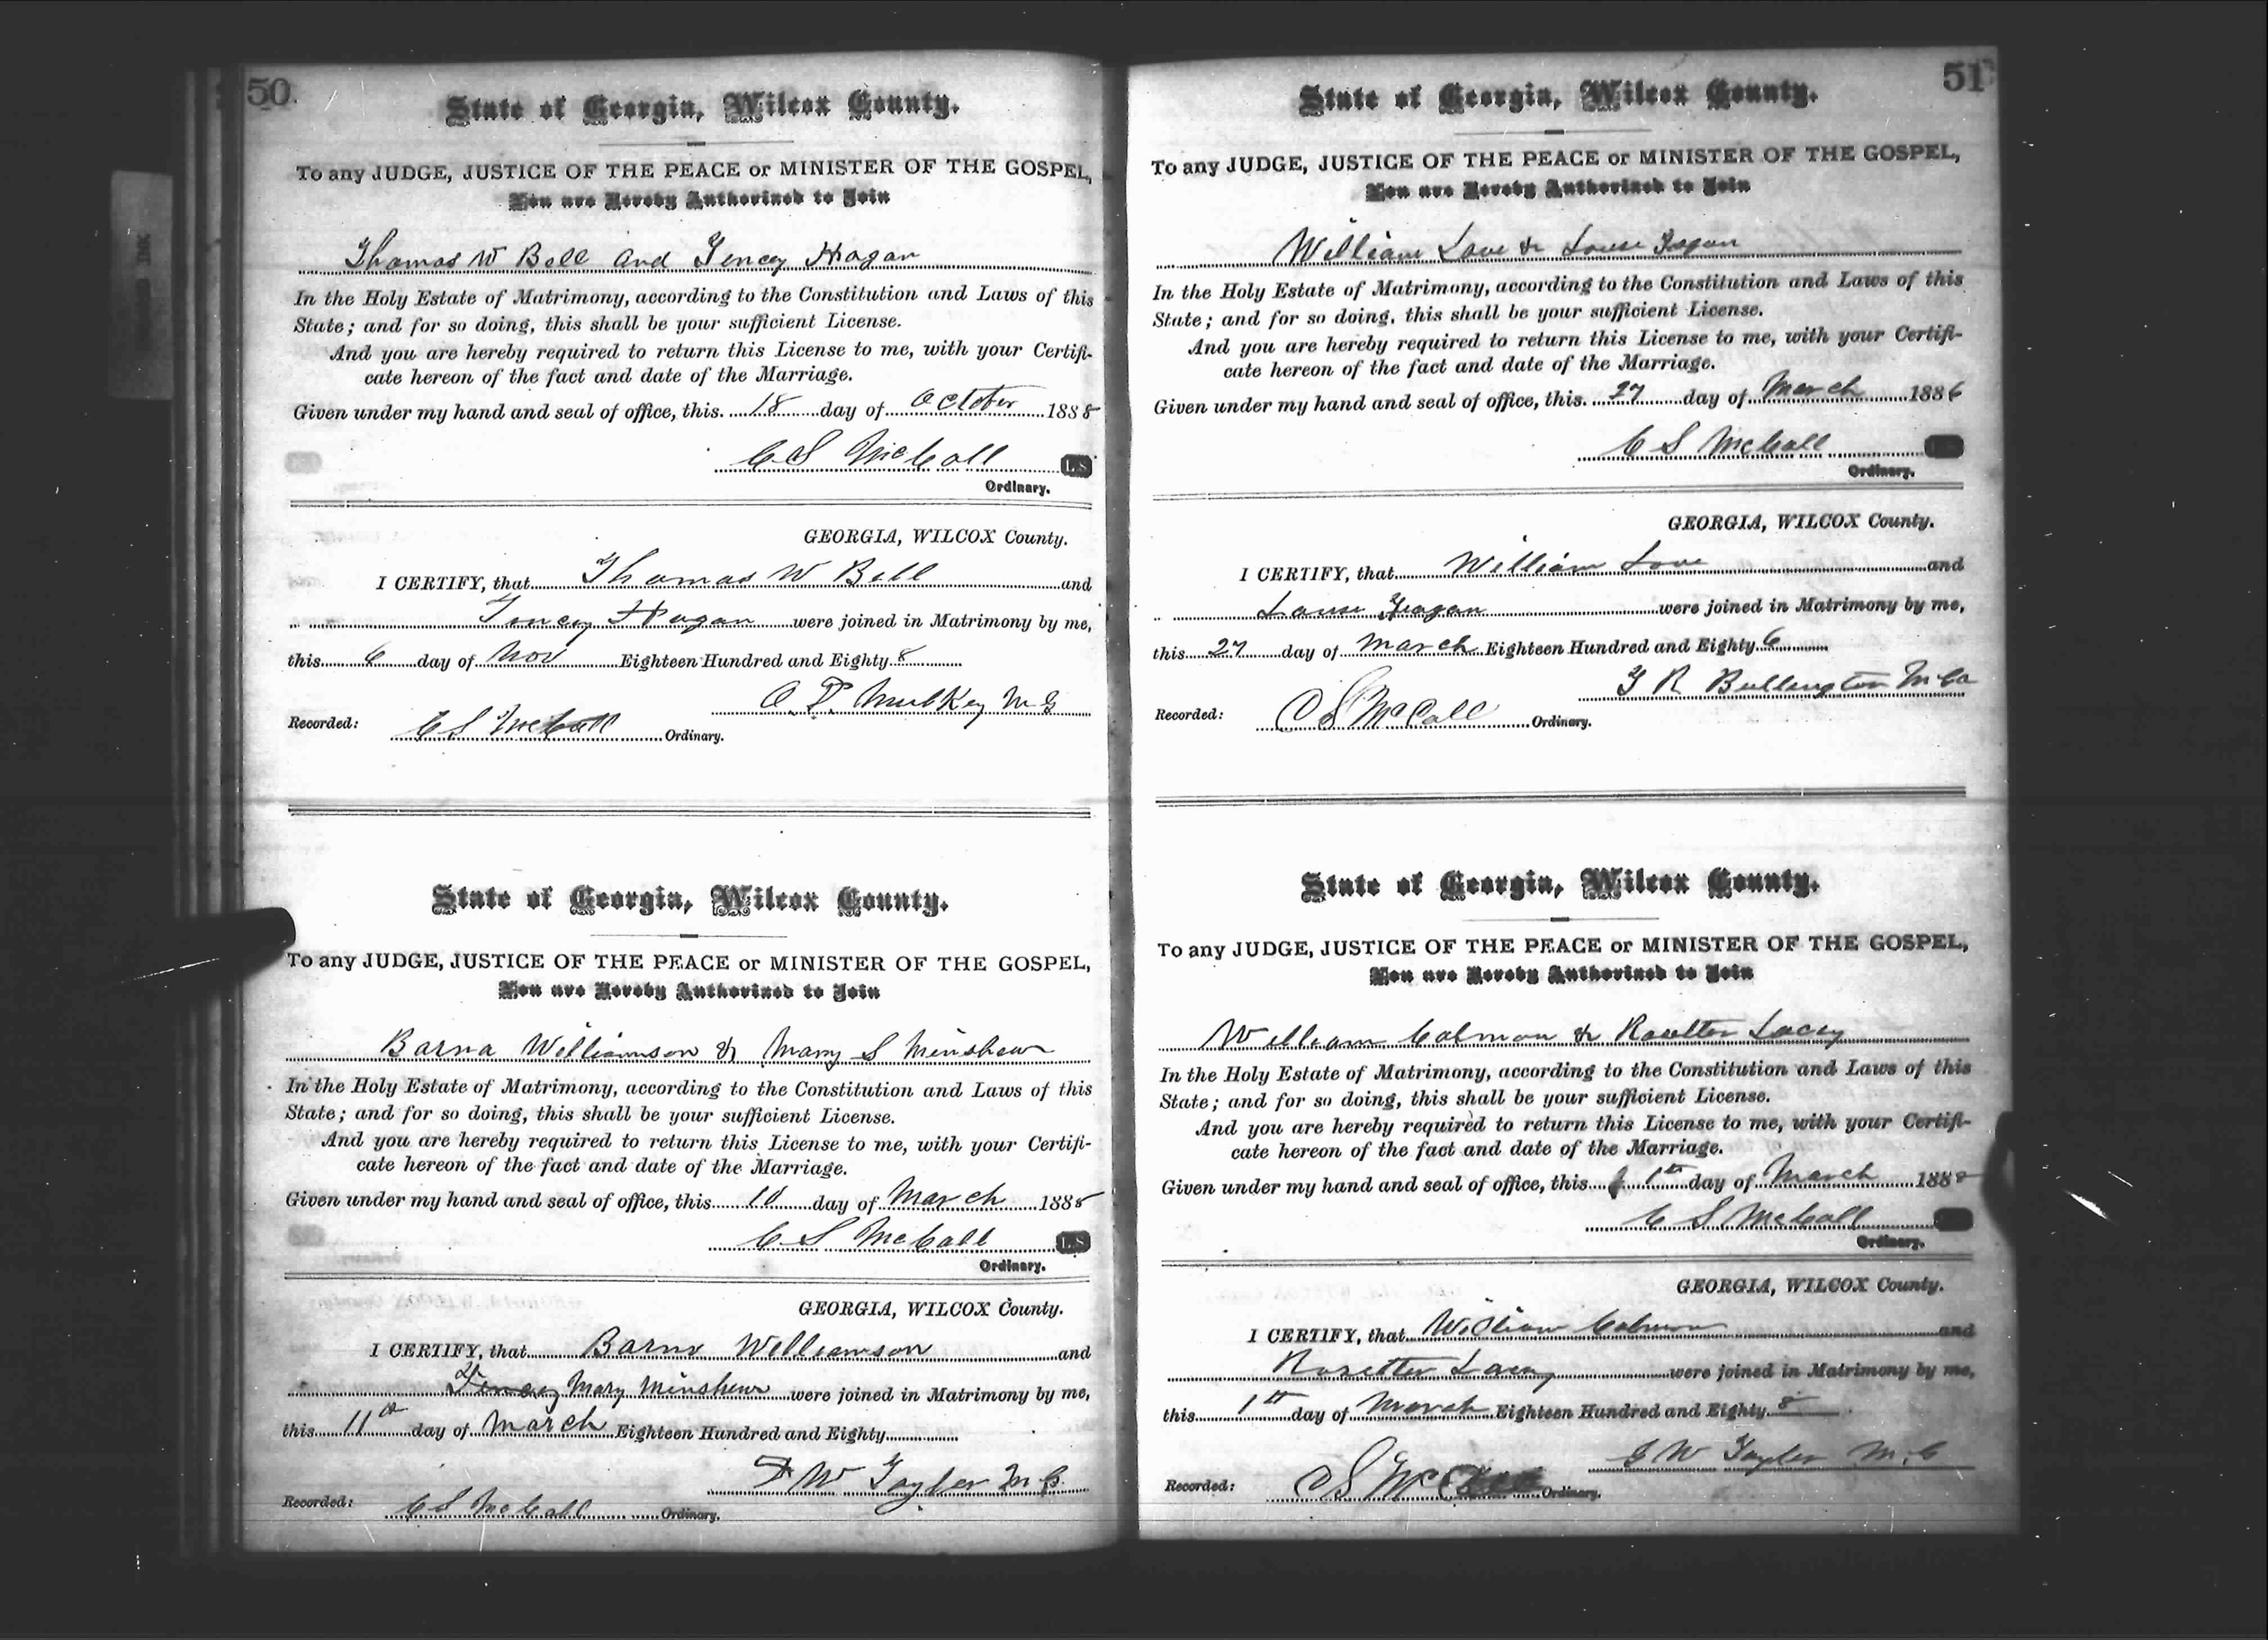 50
State of Georgia, Wilcox County.
To any JUDGE, JUSTICE OF THE PEACE or MINISTER OF THE GOSPEL,
You are Hereby Authorized to Join
Thomas W Bell and Tency Hagan
In the Holy Estate of Matrimony, according to the Constitution and Laws of this
State; and for so doing, this shall be your sufficient License.
And you are hereby required to return this License to me, with your Certifi-
cate hereon of the fact and date of the Marriage.
Given under my hand and seal of office, this 18 day of October 1888
C S McCall L.S
Ordinary.
GEORGIA, WILCOX County.
I CERTIFY, that Thomas W Bell and
Tency Hagan were joined in Matrimony by me,
this 6 day of Nov Eighteen Hundred and Eighty 8
O. P. Mulkey M G
Recorded: C S McCall Ordinary.
State of Georgia, Wilcox County.
To any JUDGE, JUSTICE OF THE PEACE or MINISTER OF THE GOSPEL,
You are Hereby Authorized to Join
Barna Williamson & Mary S Minshew
In the Holy Estate of Matrimony, according to the Constitution and Laws of this
State; and for so doing, this shall be your sufficient License.
And you are hereby required to return this License to me, with your Certifi-
cate hereon of the fact and date of the Marriage.
Given under my hand and seal of office, this 10 day of March 1888
C S McCall L.S
Ordinary.
GEORGIA, WILCOX County.
I CERTIFY, that Barna Williamson and
Mary Minshew were joined in Matrimony by me,
this 11th day of March Eighteen Hundred and Eighty
W Tayler M G
Recorded: C S McCall Ordinary.
51
State of Georgia, Wilcox County.
To any JUDGE, JUSTICE OF THE PEACE or MINISTER OF THE GOSPEL,
You are Hereby Authorized to Join
William Love & Louse
In the Holy Estate of Matrimony, according to the Constitution and Laws of this
State; and for so doing, this shall be your sufficient License.
And you are hereby required to return this License to me, with your Certifi-
cate hereon of the fact and date of the Marriage.
Given under my hand and seal of office, this 27 day of March 1886
C S McCall
Ordinary.
GEORGIA, WILCOX County.
I CERTIFY, that William Love and
Louse were joined in Matrimony by me,
this 27 day of March Eighteen Hundred and Eighty 6
R Bullington
Recorded: C S McCall Ordinary.
State of Georgia, Wilcox County.
To any JUDGE, JUSTICE OF THE PEACE or MINISTER OF THE GOSPEL,
You are Hereby Authorized to Join
William Colmon & Lacey
In the Holy Estate of Matrimony, according to the Constitution and Laws of this
State; and for so doing, this shall be your sufficient License.
And you are hereby required to return this License to me, with your Certifi-
cate hereon of the fact and date of the Marriage.
Given under my hand and seal of office, this 1th day of March 1888
C S McCall
Ordinary.
GEORGIA, WILCOX County.
I CERTIFY, that William Colmon and
Rosetter Lacey were joined in Matrimony by me,
this 1th day of March Eighteen Hundred and Eighty 8
W Tayler M. G
Recorded: C S McCall Ordinary.